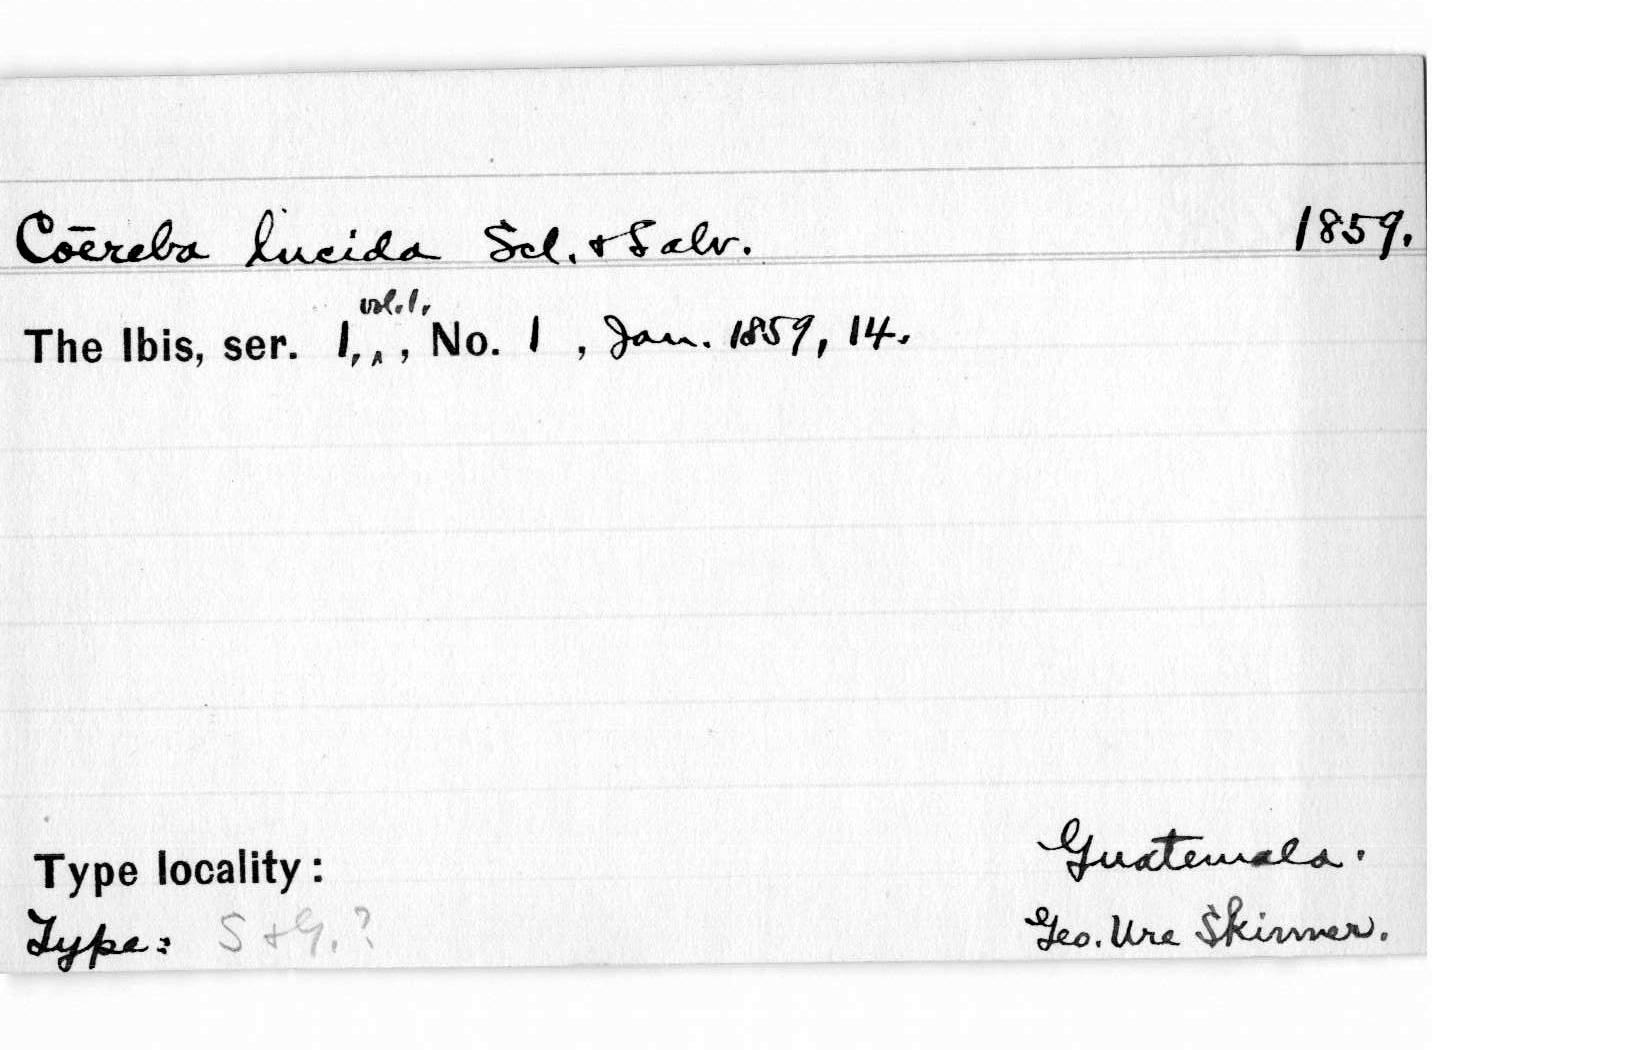 Coēreba lucida Scl. & Salv. 1859.
vol. 1,
The Ibis, ser. 1, ‸, No. 1 , Jan. 1859, 14.
Type locality: Guatemala.
Type: S & G. ? Geo. Ure Skinner.